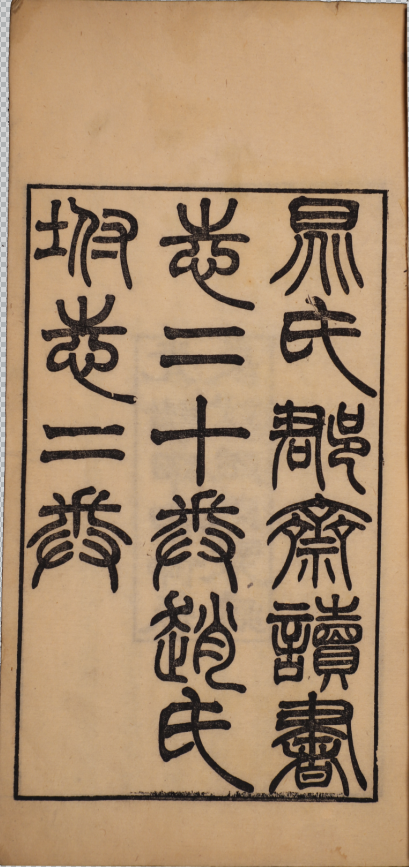 鼂氏郡齋讀書
志二十卷趙氏
坿志二卷